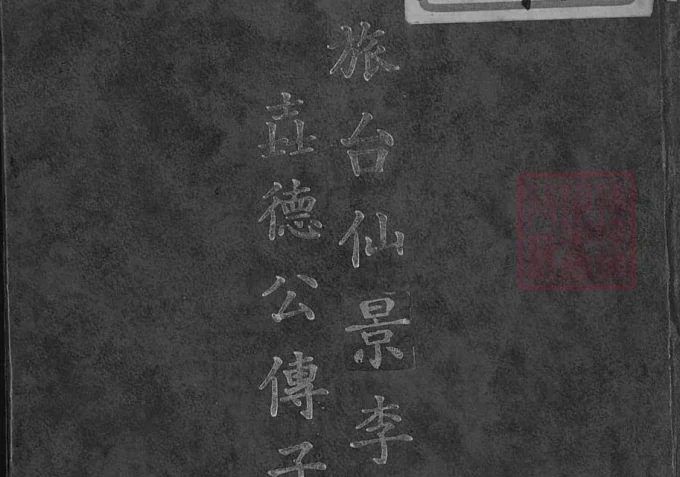 旅台仙景李
壵德公傳子